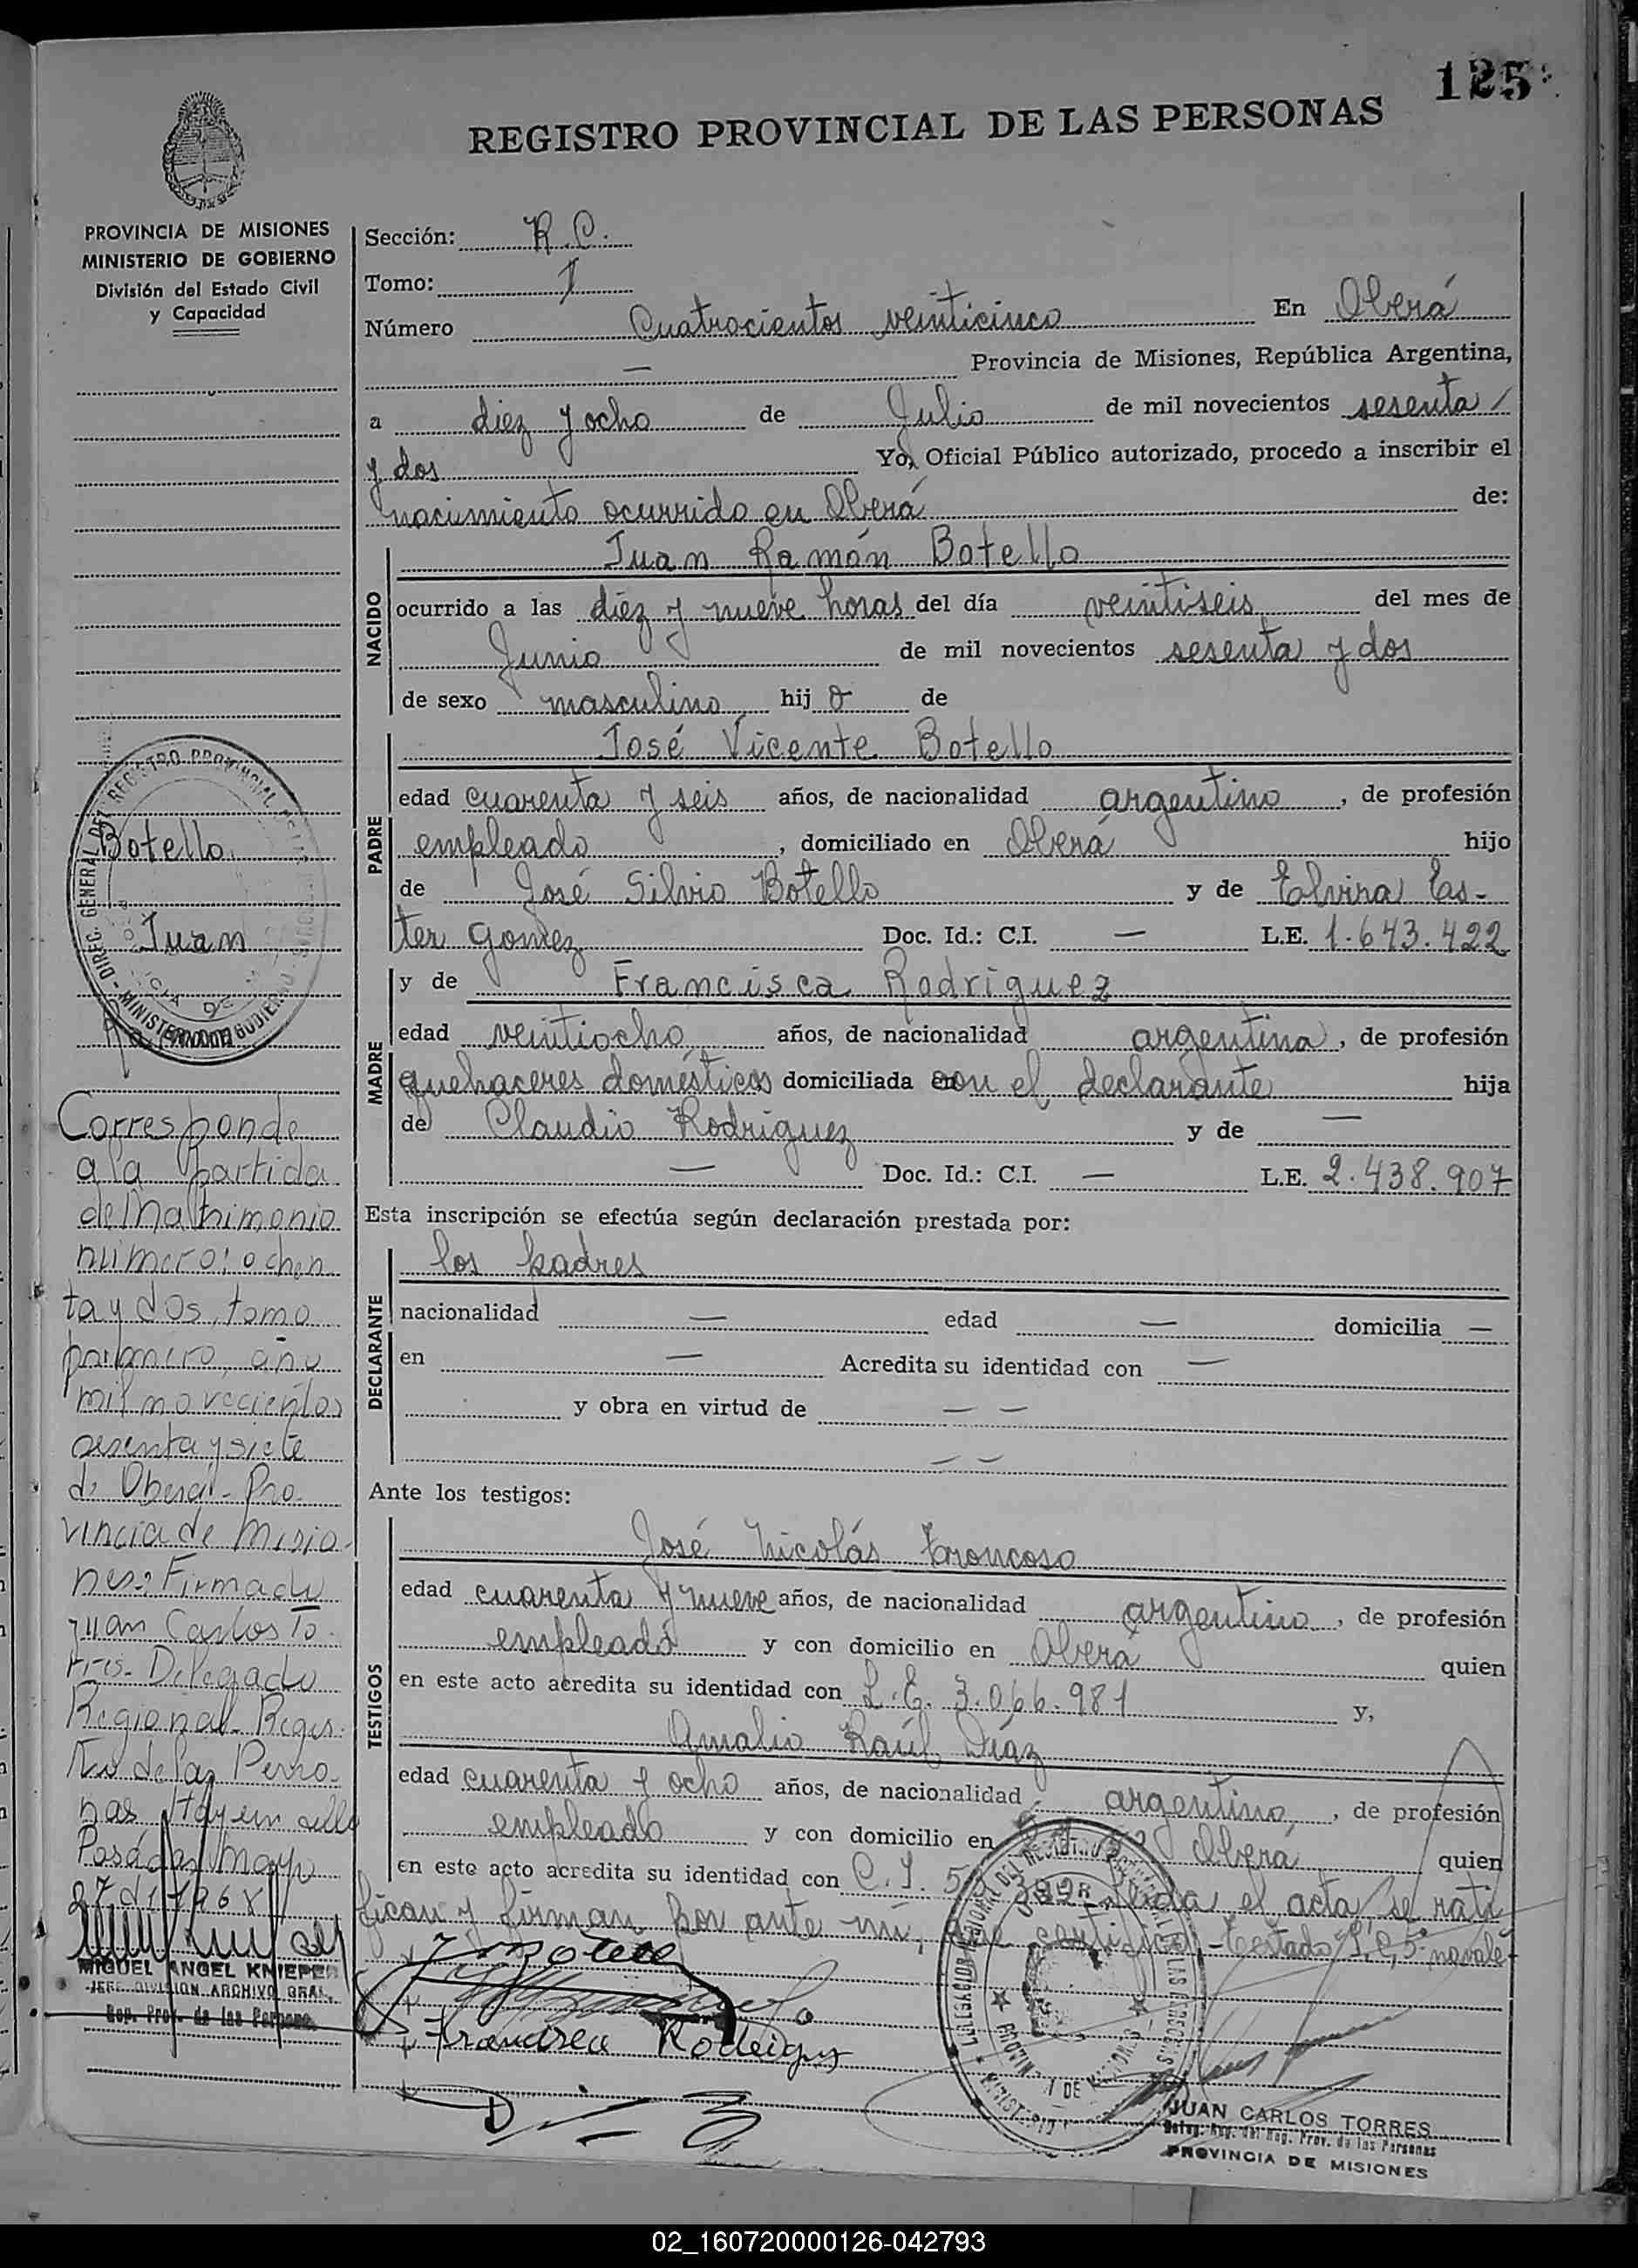 125
REGISTRO PROVINCIAL DE LAS PERSONAS
PROVINCIA DE MISIONES
MINISTERIO DE GOBIERNO
División del Estado Civil
y Capacidad
Sección: R.C.
Tomo: 1
Número Cuatrocientos veinticinco En Oberá
— Provincia de Misiones, República Argentina,
a diez y ocho de Julio de mil novecientos sesenta
y dos Yo, Oficial Público autorizado, procedo a inscribir el
nacimiento ocurrido en Oberá de:
NACIDO
Juan Ramón Botello
ocurrido a las diez y nueve horas del día veintiseis del mes de
Junio de mil novecientos sesenta y dos
de sexo masculino hij o de
PADRE
José Vicente Botello
edad cuarenta y seis años, de nacionalidad argentino, de profesión
empleado, domiciliado en Oberá hijo
de José Silvio Botello y de Elvira Es-
ter Gomez Doc. Id.: C.I. — L.E. 1.643.422
MADRE
y de Francisca Rodriguez
edad veintiocho años, de nacionalidad argentina, de profesión
quehaceres domésticos domiciliada con el declarante hija
de Claudio Rodriguez y de —
— Doc. Id.: C.I. — L.E. 2.438.907
Esta inscripción se efectúa según declaración prestada por:
DECLARANTE
los padres
nacionalidad — edad — domicilia —
en — Acredita su identidad con —
y obra en virtud de — —
— —
Ante los testigos:
TESTIGOS
José Nicolás Troncoso
edad cuarenta y nueve años, de nacionalidad argentino, de profesión
empleado y con domicilio en Oberá quien
en este acto acredita su identidad con L.E. 3.066.981 y,
Amalio Raúl Díaz
edad cuarenta y ocho años, de nacionalidad argentino, de profesión
empleado y con domicilio en Oberá quien
en este acto acredita su identidad con C.I. leida el acta se rati
fican y firman por ante mí, que certifico.- Testado no vale-
Francisca Rodriguez
JUAN CARLOS TORRES
Deleg. Reg. del Reg. Prov. de las Personas
PROVINCIA DE MISIONES
Botello
Juan
Corresponde
a la partida
de Matrimonio
número: ochen
ta y dos, tomo
primero, año
mil novecientos
sesenta y siete
de Oberá - Pro-
vincia de Misio-
nes: Firmado
Juan Carlos To-
rres - Delegado
Regional - Regis-
tro de las Perso-
nas Hay un sello
Posadas, Mayo
27 de 1968
MIGUEL ANGEL KNIEPER
JEFE DIVISION ARCHIVO GRAL.
Rep. Prov. de las Personas
02_160720000126-042793